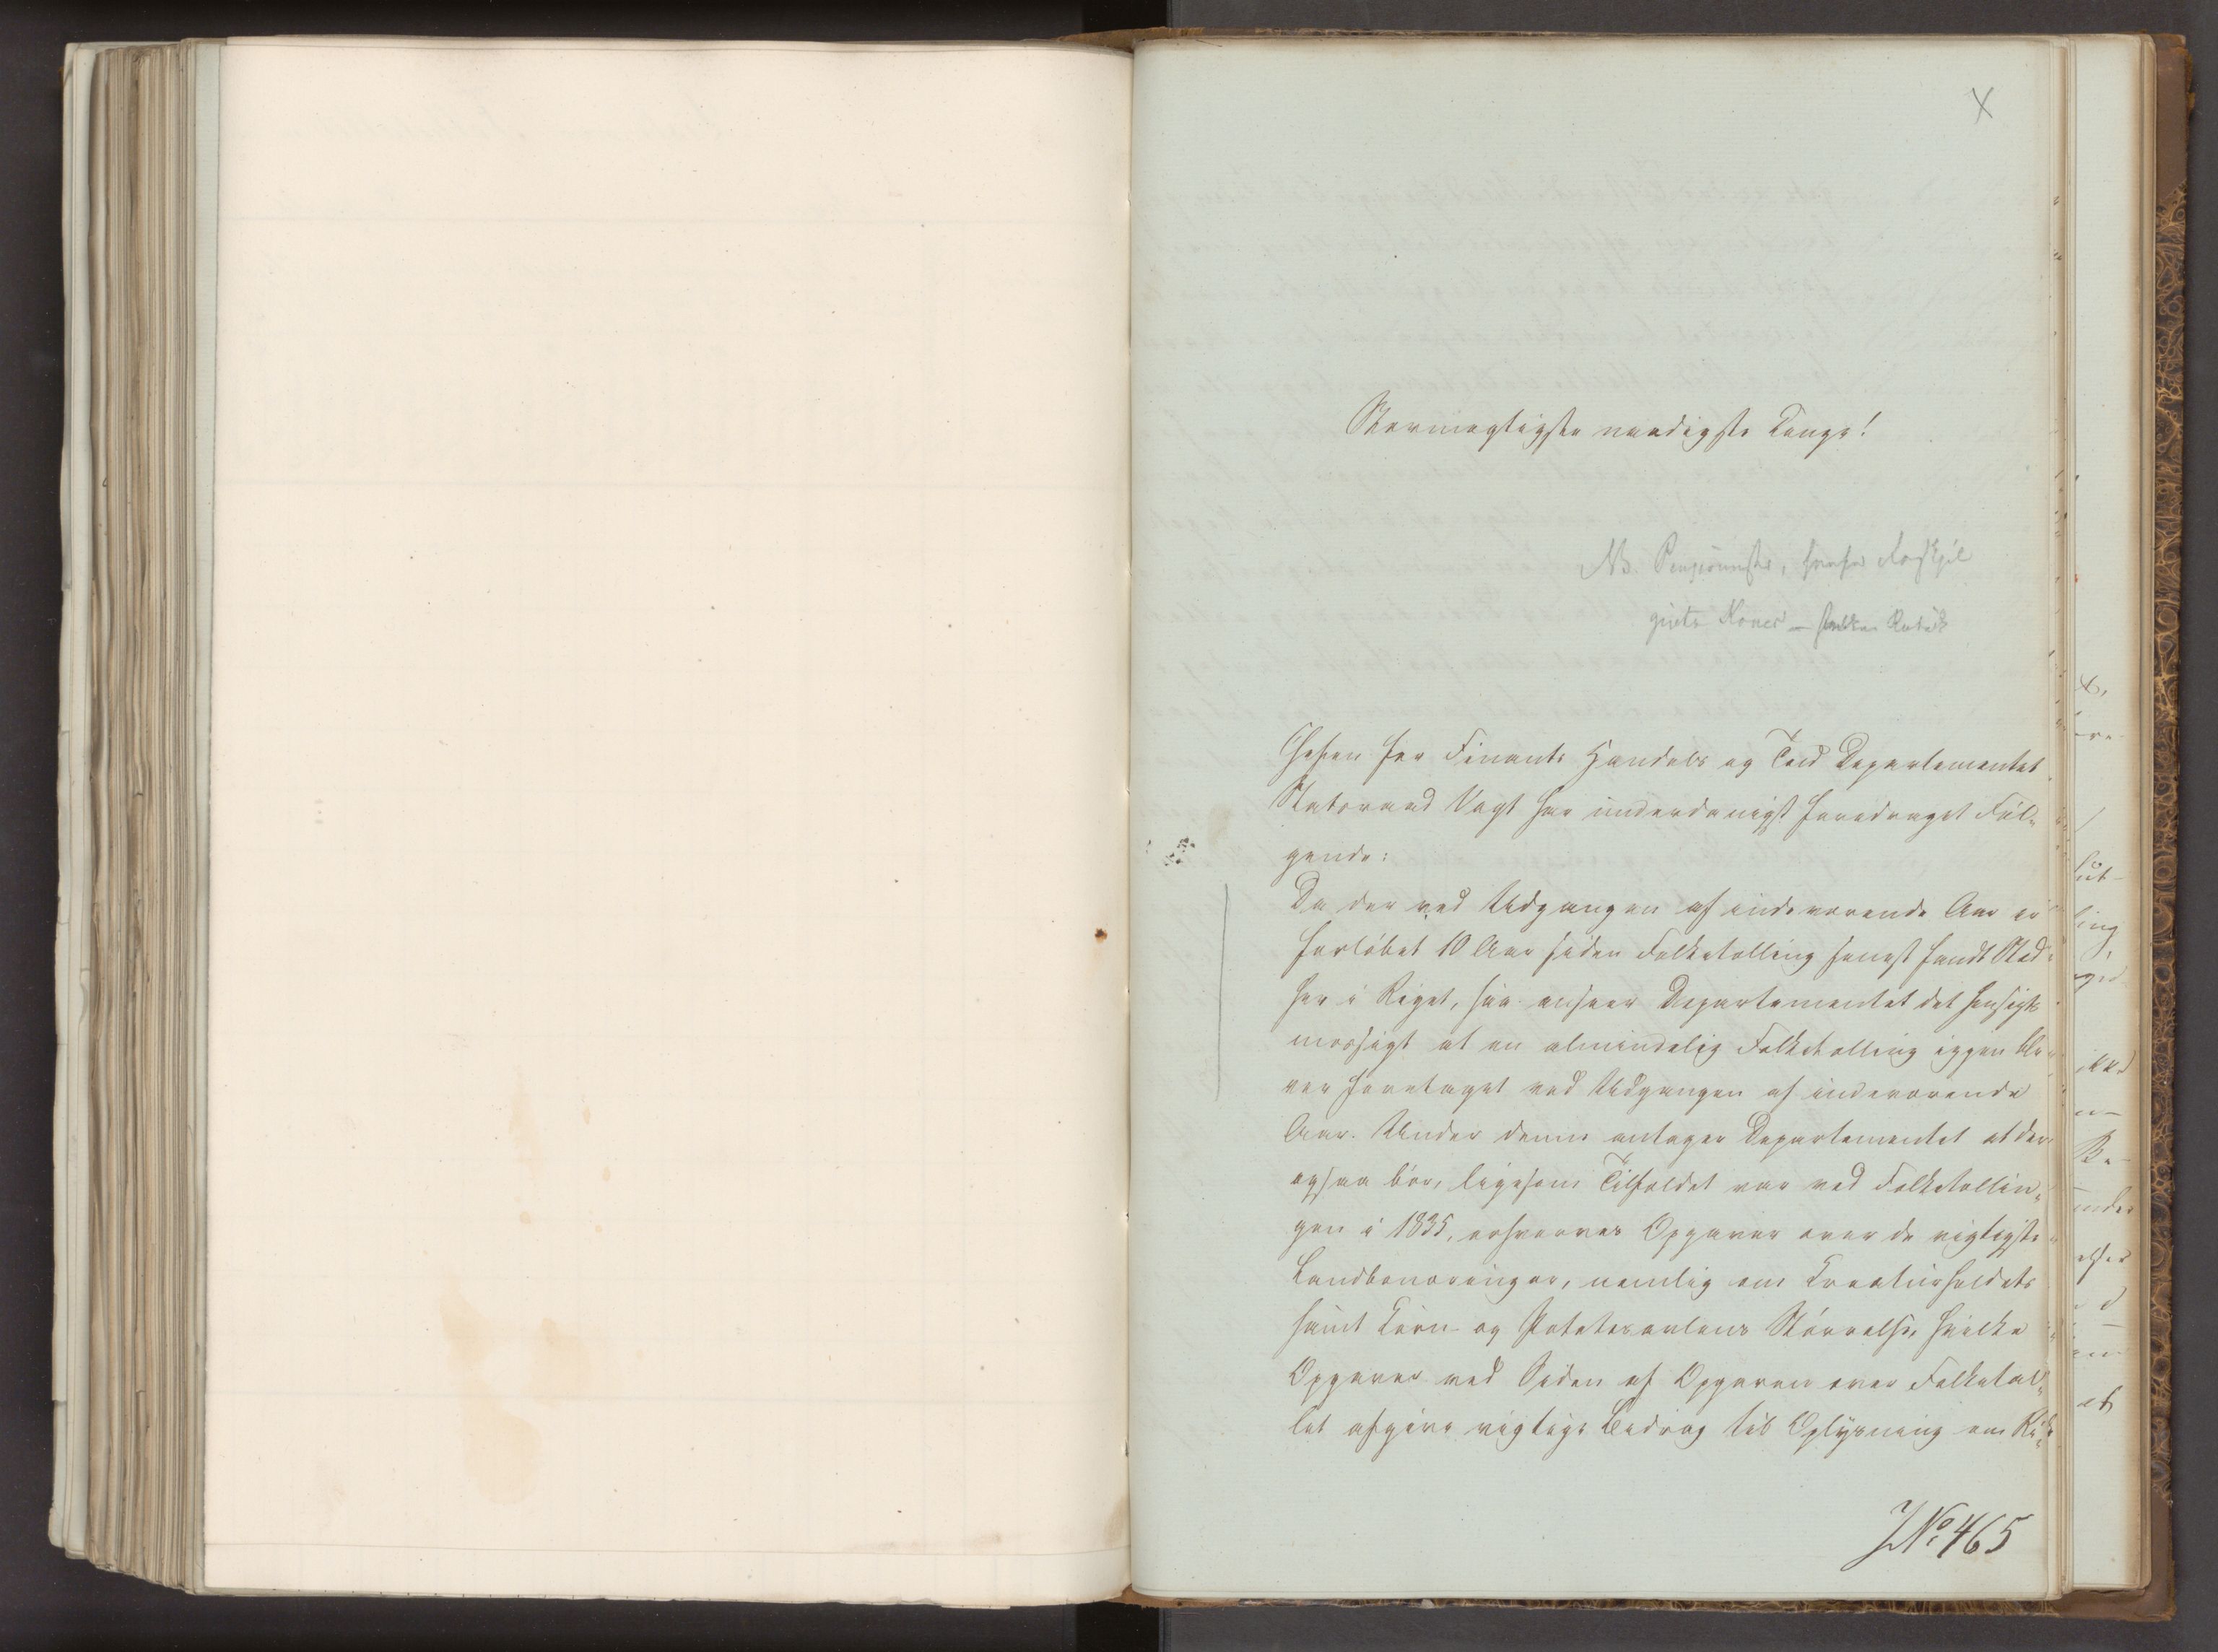 X
Stormægtigste naadigste Konge!
NB. Pensionister, hvorfor Forskjel
givte Koner — Rubrik
Chefen for Finants Handels og Told Departementet
Statsraad Vogt har underdanigst foredraget Føl-
gende:
Da der ved Udgangen af indeværende Aar er
forløbet 10 Aar siden Folketælling senest fandt Sted
her i Riget, saa anseer Departementet det hensigts
mæssigt at en almindelig Folketælling iggen bli-
ver foretaget ved Udgangen af indeværende
Aar. Under denne antager Departementet at der
ogsaa bør, ligesom Tilfældet var ved Folketællin-
gen i 1835, erhverves Opgaver over de vigtigste
Landbonæringer, nemlig om Kreaturholdets
samt Korn- og Potatesavlens Størrelse, hvilke
Opgaver ved Siden af Opgaven over Folketal-
let afgive vigtige Bidrag til Oplysning om Ri-
JNo 465